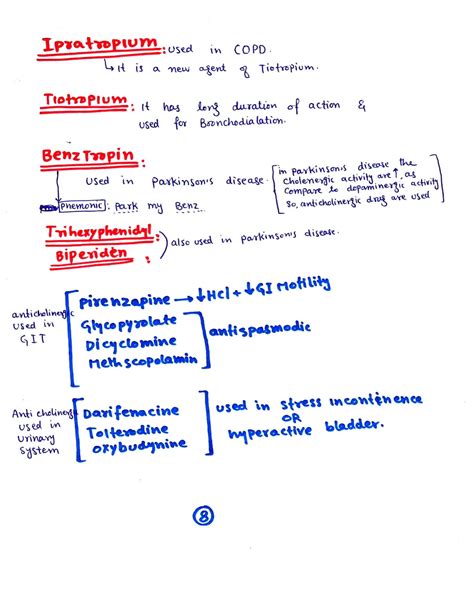 Ipratropium : used in COPD.
↳ It is a new agent of Tiotropium.
Tiotropium : It has long duration of action &
used for Bronchodialation.
BenzTropin :
used in parkinson's disease. [in parkinson's disease the
cholenergic activity are ↑, as
compare to dopaminergic activity
so, anticholinergic drug are used]
Pnemonic : Park my Benz
Trihexyphenidyl :
Biperiden :
) also used in parkinson's disease.
anticholinergic
used in
GIT
Pirenzapine → ↓Hcl + ↓GI Motility
Glycopyrolate
Dicyclomine
Methscopolamin
antispasmodic
Anti cholinergic
used in
urinary
system
Darifenacine
Tolterodine
oxybudynine
used in stress incontenence
OR
hyperactive bladder.
8